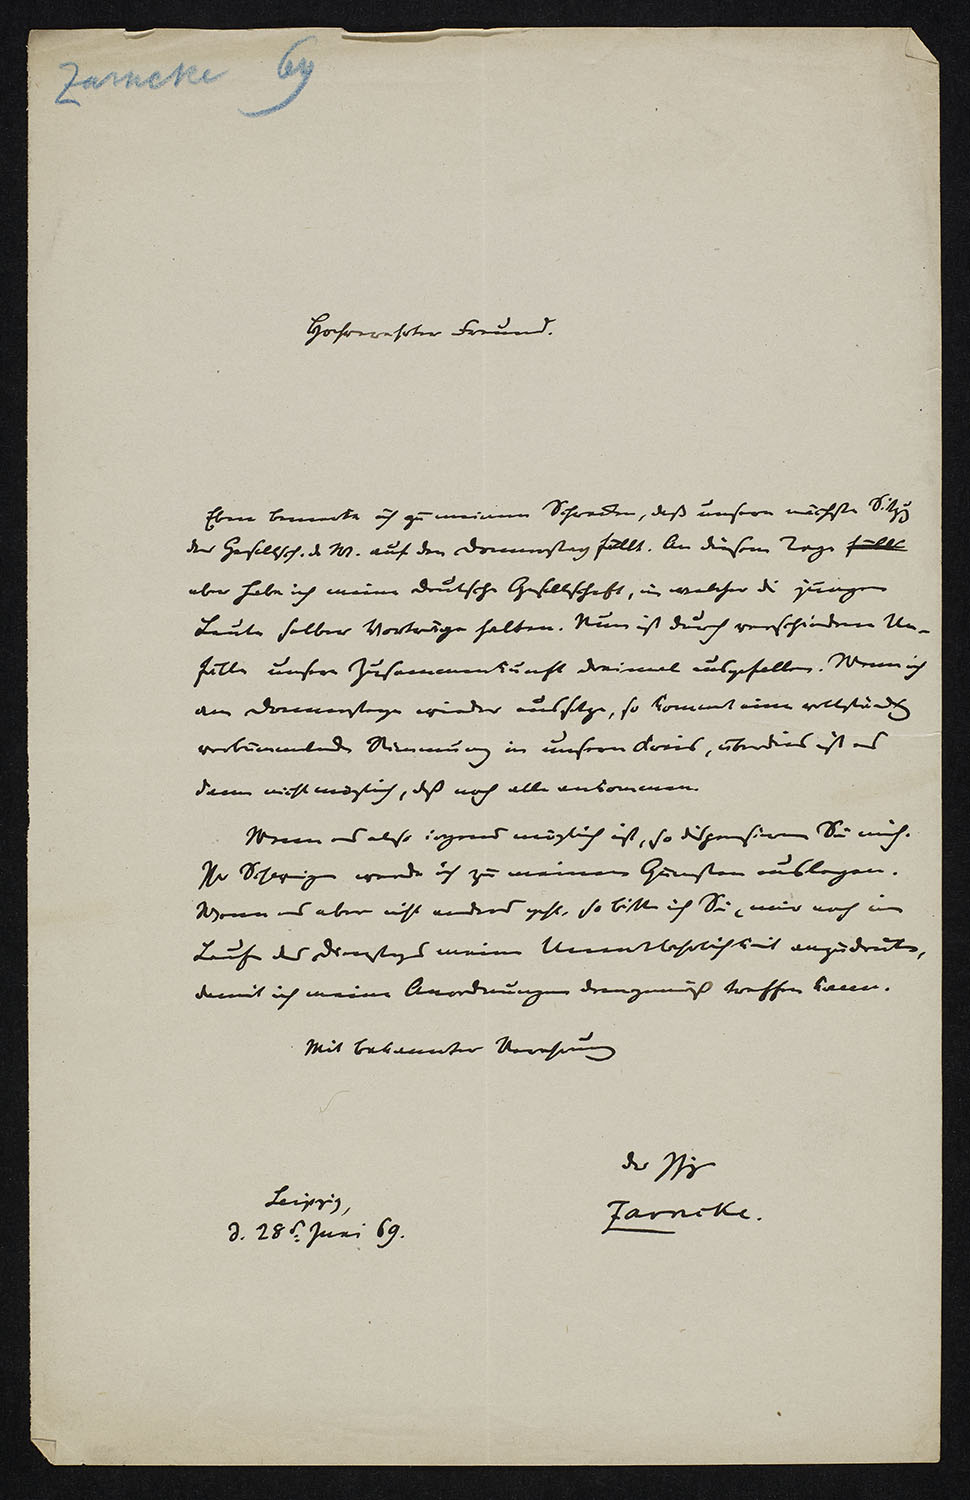 Zarncke 69
Hochverehrter Freund.
Eben bemerke ich zu meinem Schrecken, daß unsere nächste Sitzg
der Gesellsch. d. W. auf den Donnerstag fällt. An diesem Tage fällt
aber habe ich meine deutsche Gesellschaft, in welcher die jungen
Leute selber Vorträge halten. Nun ist durch verschiedene Un-
fälle unsere Zusammenkunft dreimal ausgefallen. Wenn ich
am Donnerstage wieder aussetze, so kommt eine vollständig
verbummelnde Stimmung in unseren Kreis, überdies ist es
dann nicht möglich, daß noch alle ankommen.
Wenn es also irgend möglich ist, so dispensieren Sie mich.
Ihr Schweigen werde ich zu meinen Gunsten auslegen.
Wenn es aber nicht anders geht, so bitte ich Sie, mir noch im
Laufe des Dienstags meine Unentbehrlichkeit anzudeuten,
damit ich meine Anordnungen demgemäß treffen kann.
Mit bekannter Verehrung
der Ihrige
Zarncke.
Leipzig,
d. 28 Juni 69.